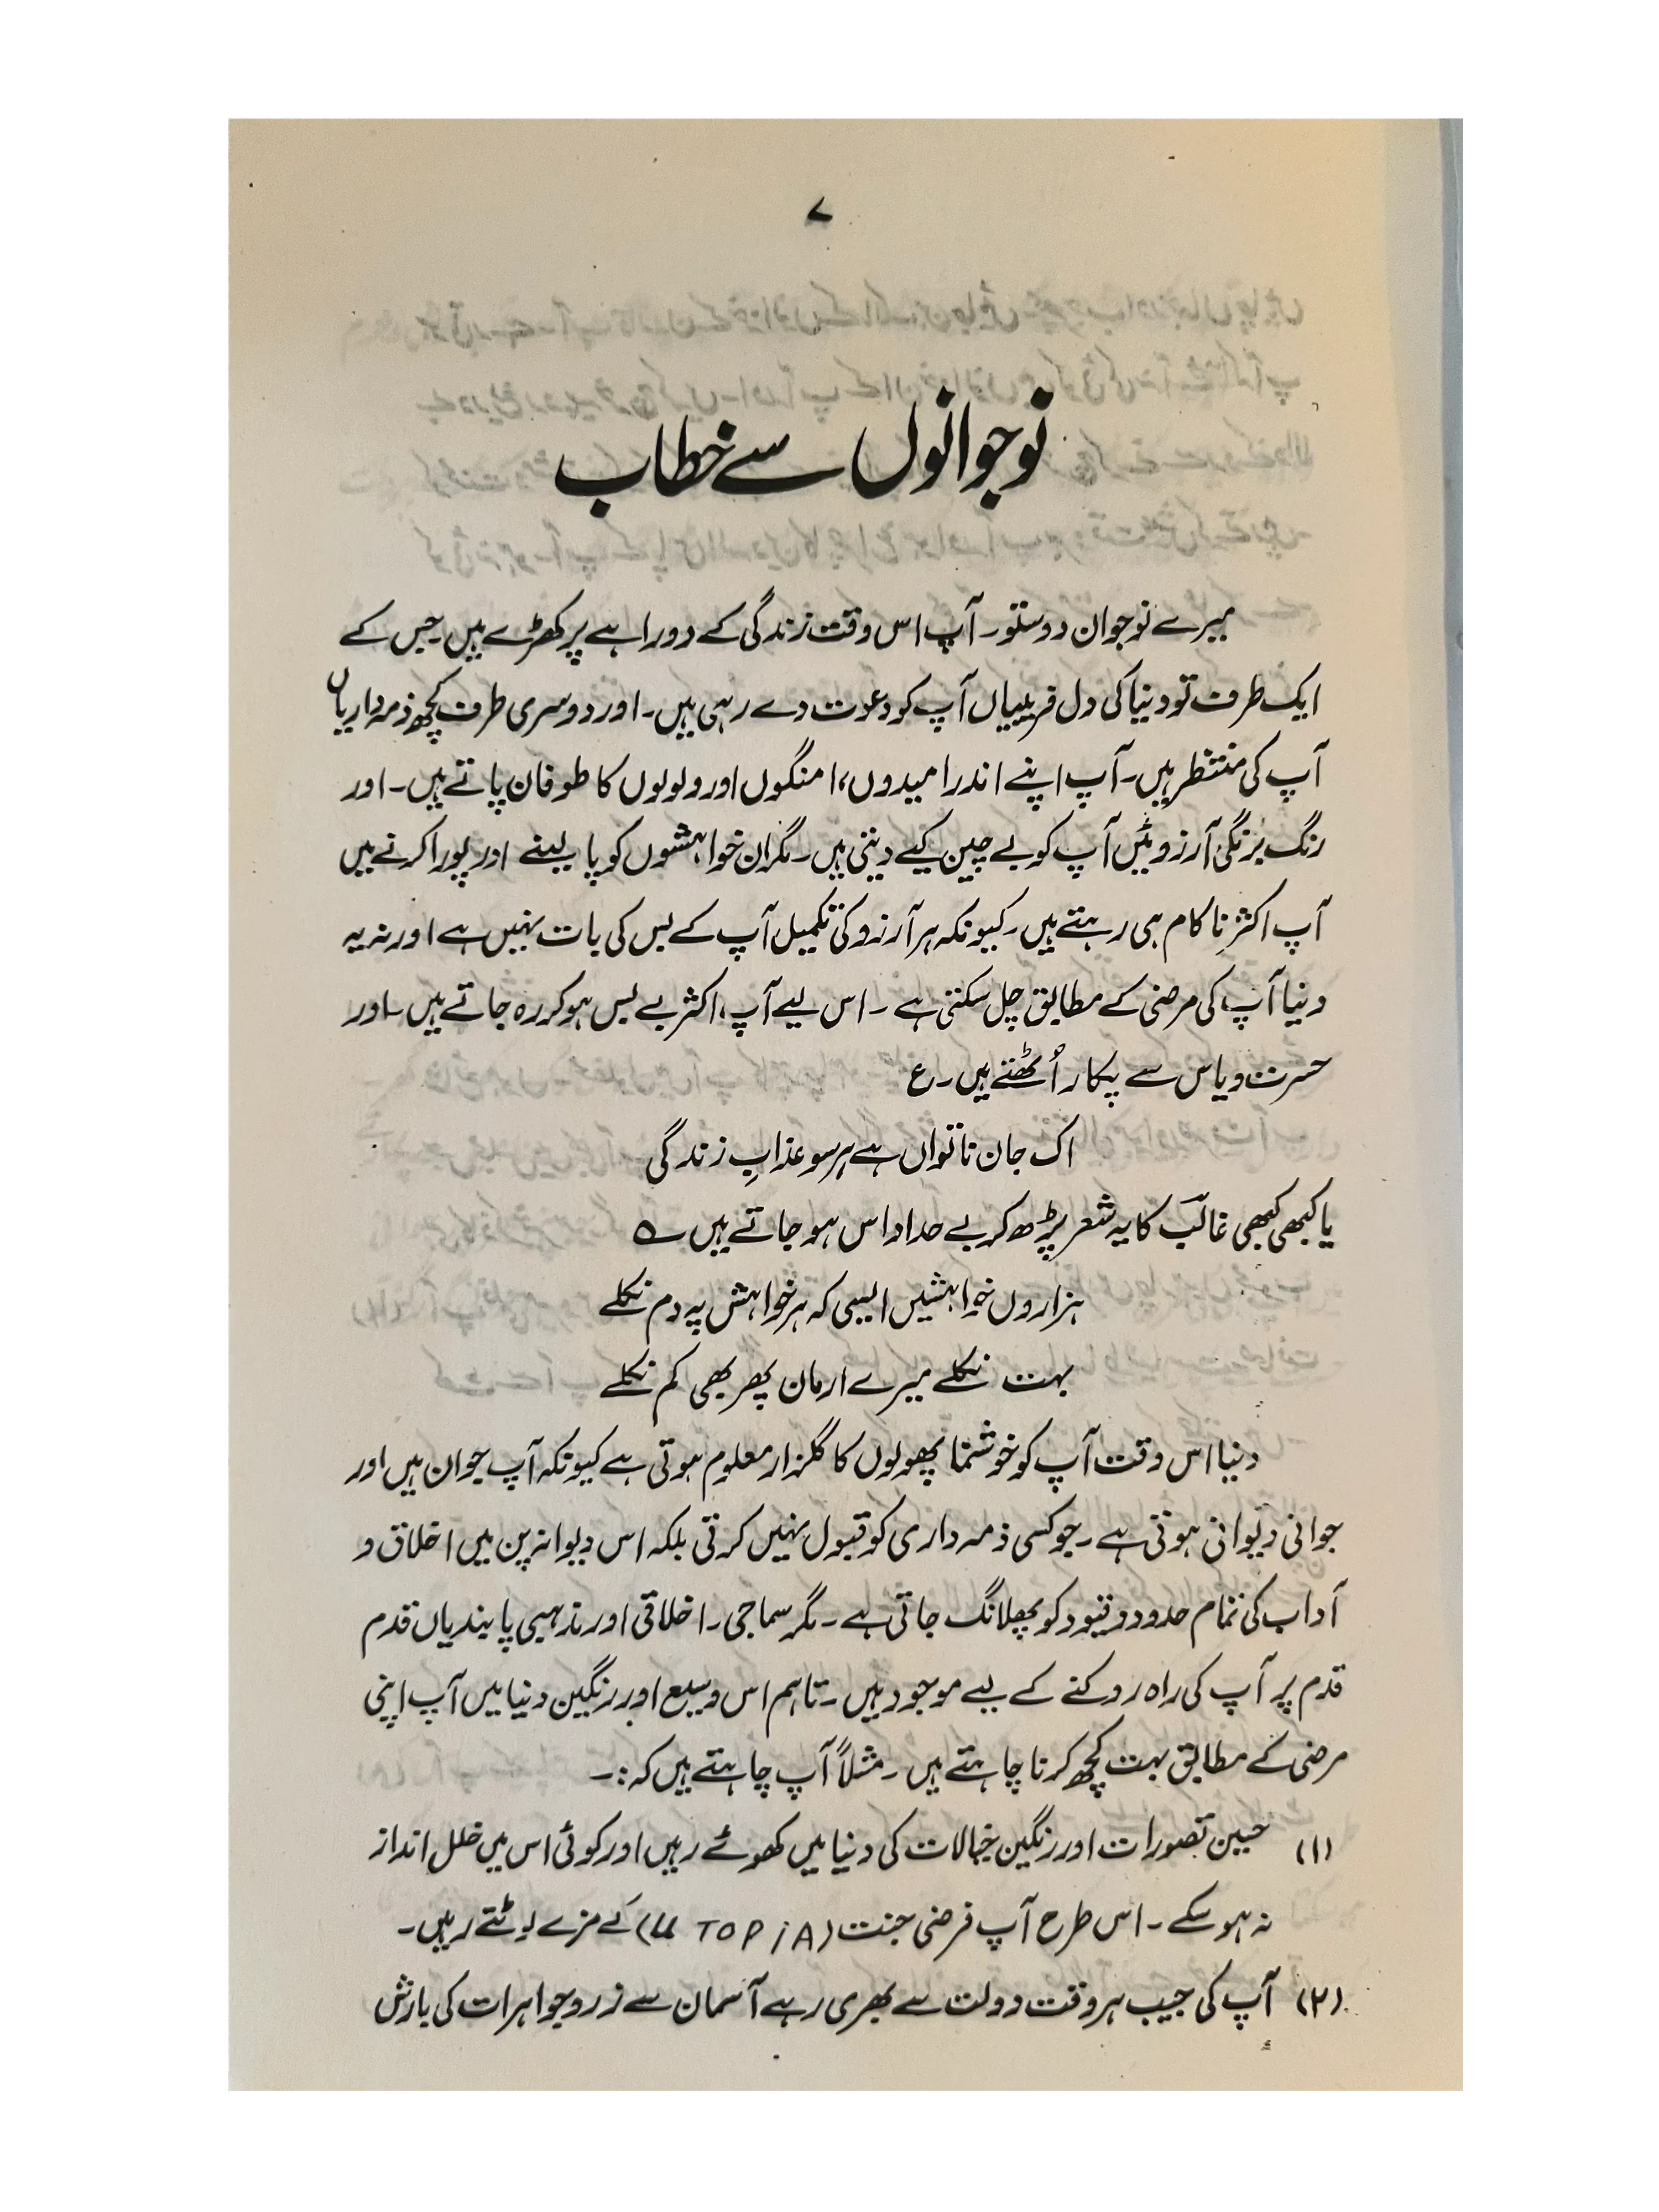 ۷
نوجوانوں سے خطاب
میرے نوجوان دوستو۔ آپ اس وقت زندگی کے دوراہے پر کھڑے ہیں۔ جس کے
ایک طرف تو دنیا کی دل فریبیاں آپ کو دعوت دے رہی ہیں۔ اور دوسری طرف کچھ ذمہ داریاں
آپ کی منتظر ہیں۔ آپ اپنے اندر امیدوں، امنگوں اور ولولوں کا طوفان پاتے ہیں۔ اور
رنگ برنگی آرزوئیں آپ کو بے چین کیے دیتی ہیں۔ مگر ان خواہشوں کو پا لینے اور پورا کرنے میں
آپ اکثر ناکام ہی رہتے ہیں۔ کیونکہ ہر آرزو کی تکمیل آپ کے بس کی بات نہیں ہے اور نہ یہ
دنیا آپ کی مرضی کے مطابق چل سکتی ہے ۔ اس لیے آپ، اکثر بے بس ہو کر رہ جاتے ہیں۔ اور
حسرت و یاس سے پکار اُٹھتے ہیں۔ ع
اک جان ناتواں ہے ہر سو عذابِ زندگی
یا کبھی کبھی غالبؔ کا یہ شعر پڑھ کر بے حد اداس ہو جاتے ہیں ؎
ہزاروں خواہشیں ایسی کہ ہر خواہش پہ دم نکلے
بہت نکلے میرے ارمان پھر بھی کم نکلے
دنیا اس وقت آپ کو خوشنما پھولوں کا گلزار معلوم ہوتی ہے کیونکہ آپ جوان ہیں اور
جوانی دیوانی ہوتی ہے ۔ جو کسی ذمہ داری کو قبول نہیں کرتی بلکہ اس دیوانہ پن میں اخلاق و
آداب کی تمام حدود و قیود کو پھلانگ جاتی ہے ۔ مگر سماجی۔ اخلاقی اور مذہبی پابندیاں قدم
قدم پر آپ کی راہ روکنے کے لیے موجود ہیں ۔ تاہم اس وسیع اور رنگین دنیا میں آپ اپنی
مرضی کے مطابق بہت کچھ کرنا چاہتے ہیں ۔ مثلاً آپ چاہتے ہیں کہ :۔
(۱) حسین تصورات اور رنگین خیالات کی دنیا میں کھوئے رہیں اور کوئی اس میں خلل انداز
نہ ہو سکے ۔ اس طرح آپ فرضی جنت (UTOPiA) کے مزے لوٹتے رہیں۔
(۲) آپ کی جیب ہر وقت دولت سے بھری رہے آسمان سے زر و جواہرات کی بارش